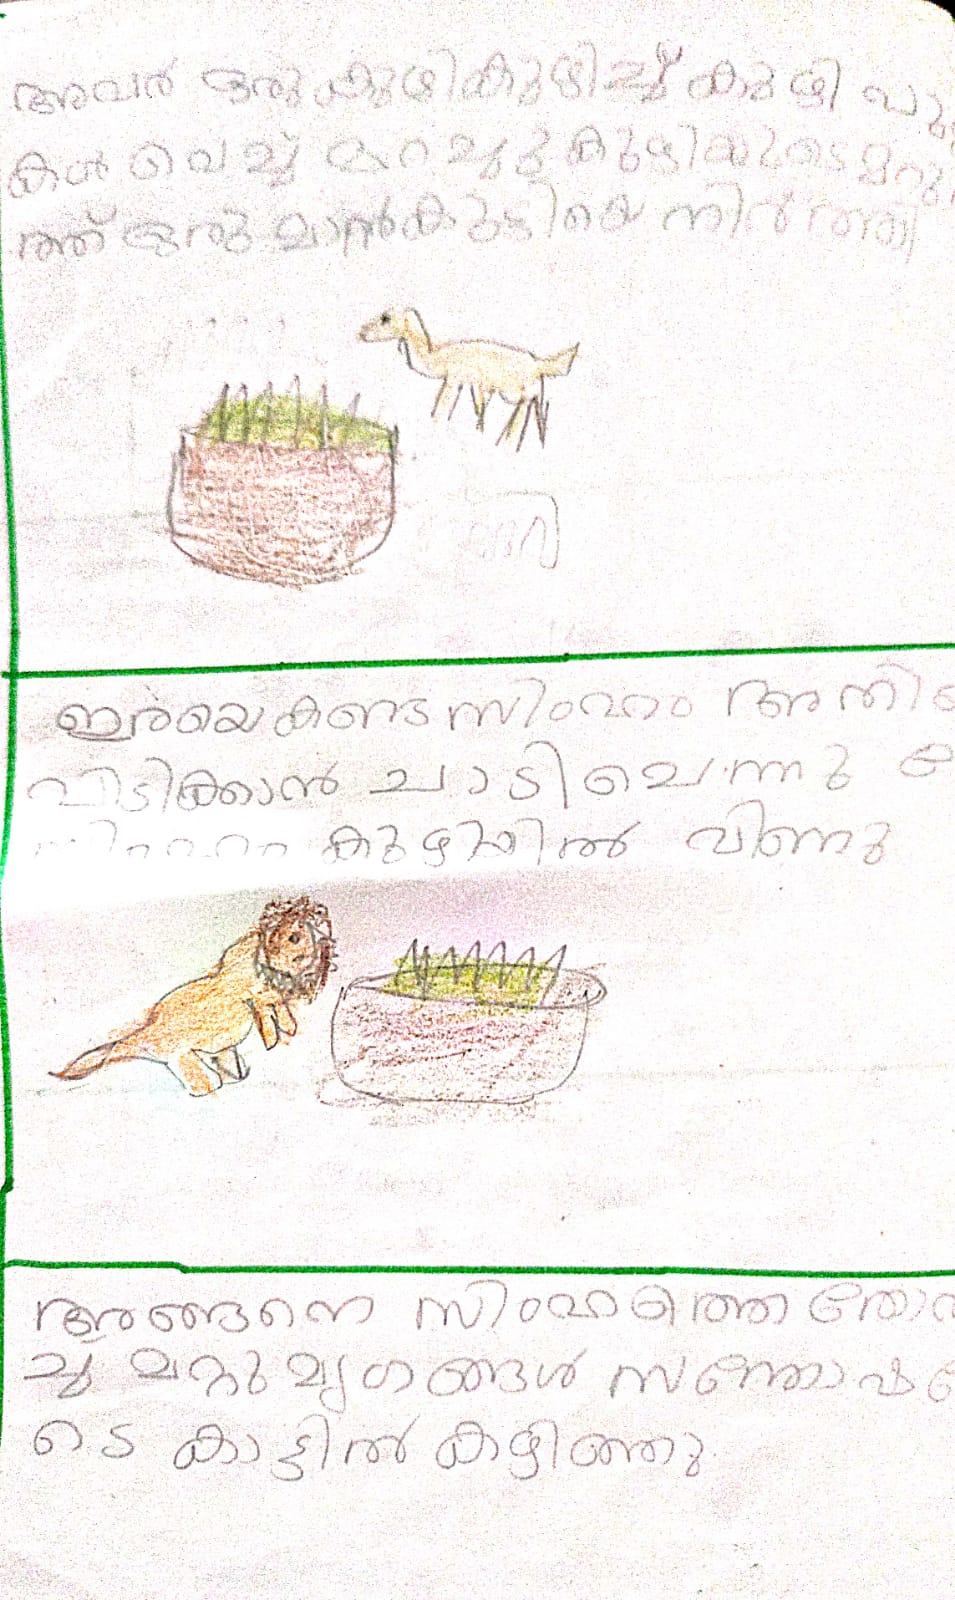 അവർ ഒരു കുഴികുഴിച്ച് കുഴി പു
കൾ വെച്ച് മറച്ചു കുഴിയുടെ പ്പുറ
ത്ത് ഒരു മാൻകുട്ടിയെ നിർത്തി
ഇരയെ കണ്ട സിംഹം അതി
പിടിക്കാൻ ചാടിചെന്നു
സിംഹം കുഴിയിൽ വീണു
അങ്ങനെ സിംഹത്തെ തോൽ
ച്ചു മറ്റു മൃഗങ്ങൾ സന്തോഷ
ടെ കാട്ടിൽ കഴിഞ്ഞു